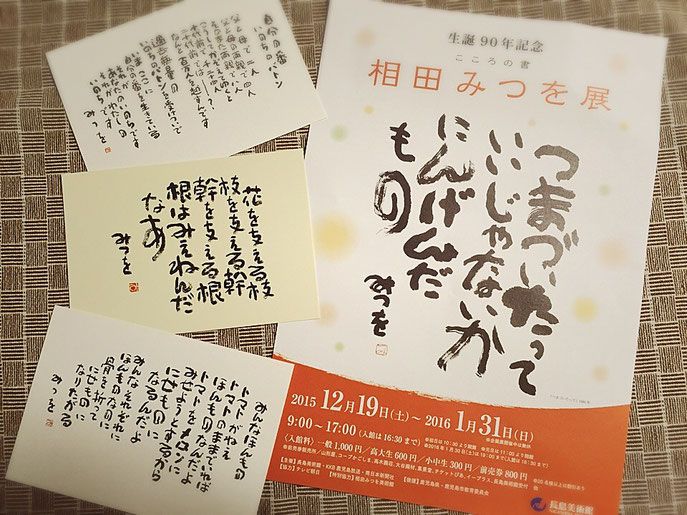 生誕90年記念
こころの書
相田みつを展
つまづいたって
いいじゃないか
にんげんだ
もの
みつを
2015 12月19日(土)~2016 1月31日(日)
9:00~17:00(入館は16:30まで)
〈入館料〉一般1,000円/高大生600円/小中生300円/前売券800円
長島美術館
自分の番
いのちのバトン
父と母で二人
父と母の両親で四人
そのまた両親で八人
過去無量の
いのちのバトンを受けついで
いまここに
自分の番を生きている
それがあなたのいのちです
それがわたしの
いのちです
みつを
花を支える枝
枝を支える幹
幹を支える根
根はみえねんだ
なあ
みつを
みんなほんもの
トマトがねえ
トマトのままでいれば
ほんものなんだよ
トマトをメロンに
みせようとするから
にせものに
なるんだよ
みんなそれぞれに
ほんものなのに
骨を折って
にせものに
なりたがる
みつを